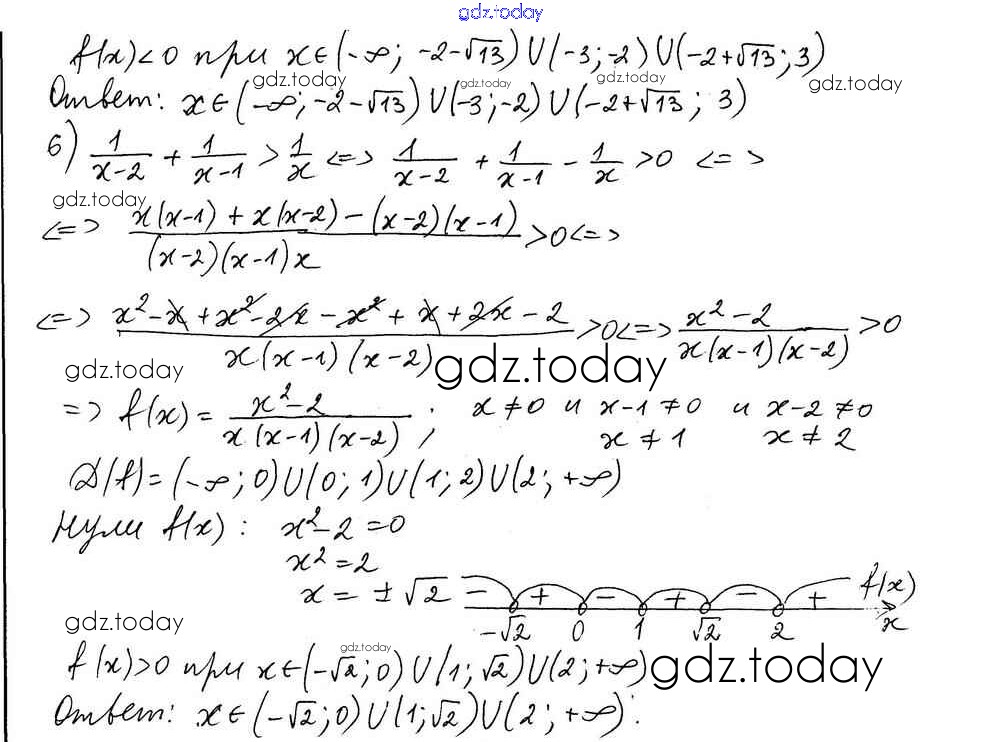 gdz.today
f(x)<0 при x∈(-∞; -2-√13)∪(-3;-2)∪(-2+√13; 3)
gdz.today gdz.today gdz.today gdz.today
Ответ: x∈(-∞; -2-√13)∪(-3;-2)∪(-2+√13; 3)
б) 1/(x-2) + 1/(x-1) > 1/x <=> 1/(x-2) + 1/(x-1) - 1/x > 0 <=>
gdz.today
<=> (x(x-1) + x(x-2) - (x-2)(x-1))/((x-2)(x-1)x) > 0 <=>
<=> (x²-x+x²-2x-x²+x+2x-2)/(x(x-1)(x-2)) > 0 <=> (x²-2)/(x(x-1)(x-2)) > 0
gdz.today gdz.today
=> f(x) = (x²-2)/(x(x-1)(x-2)); x≠0 и x-1≠0 и x-2≠0
x≠1 x≠2
D(f)=(-∞;0)∪(0;1)∪(1;2)∪(2;+∞)
Нули f(x): x²-2=0
x²=2
x=±√2 - + - + - + f(x)
-√2 0 1 √2 2 x
gdz.today
gdz.today
f(x)>0 при x∈(-√2;0)∪(1;√2)∪(2;+∞)
gdz.today
Ответ: x∈(-√2;0)∪(1;√2)∪(2;+∞).